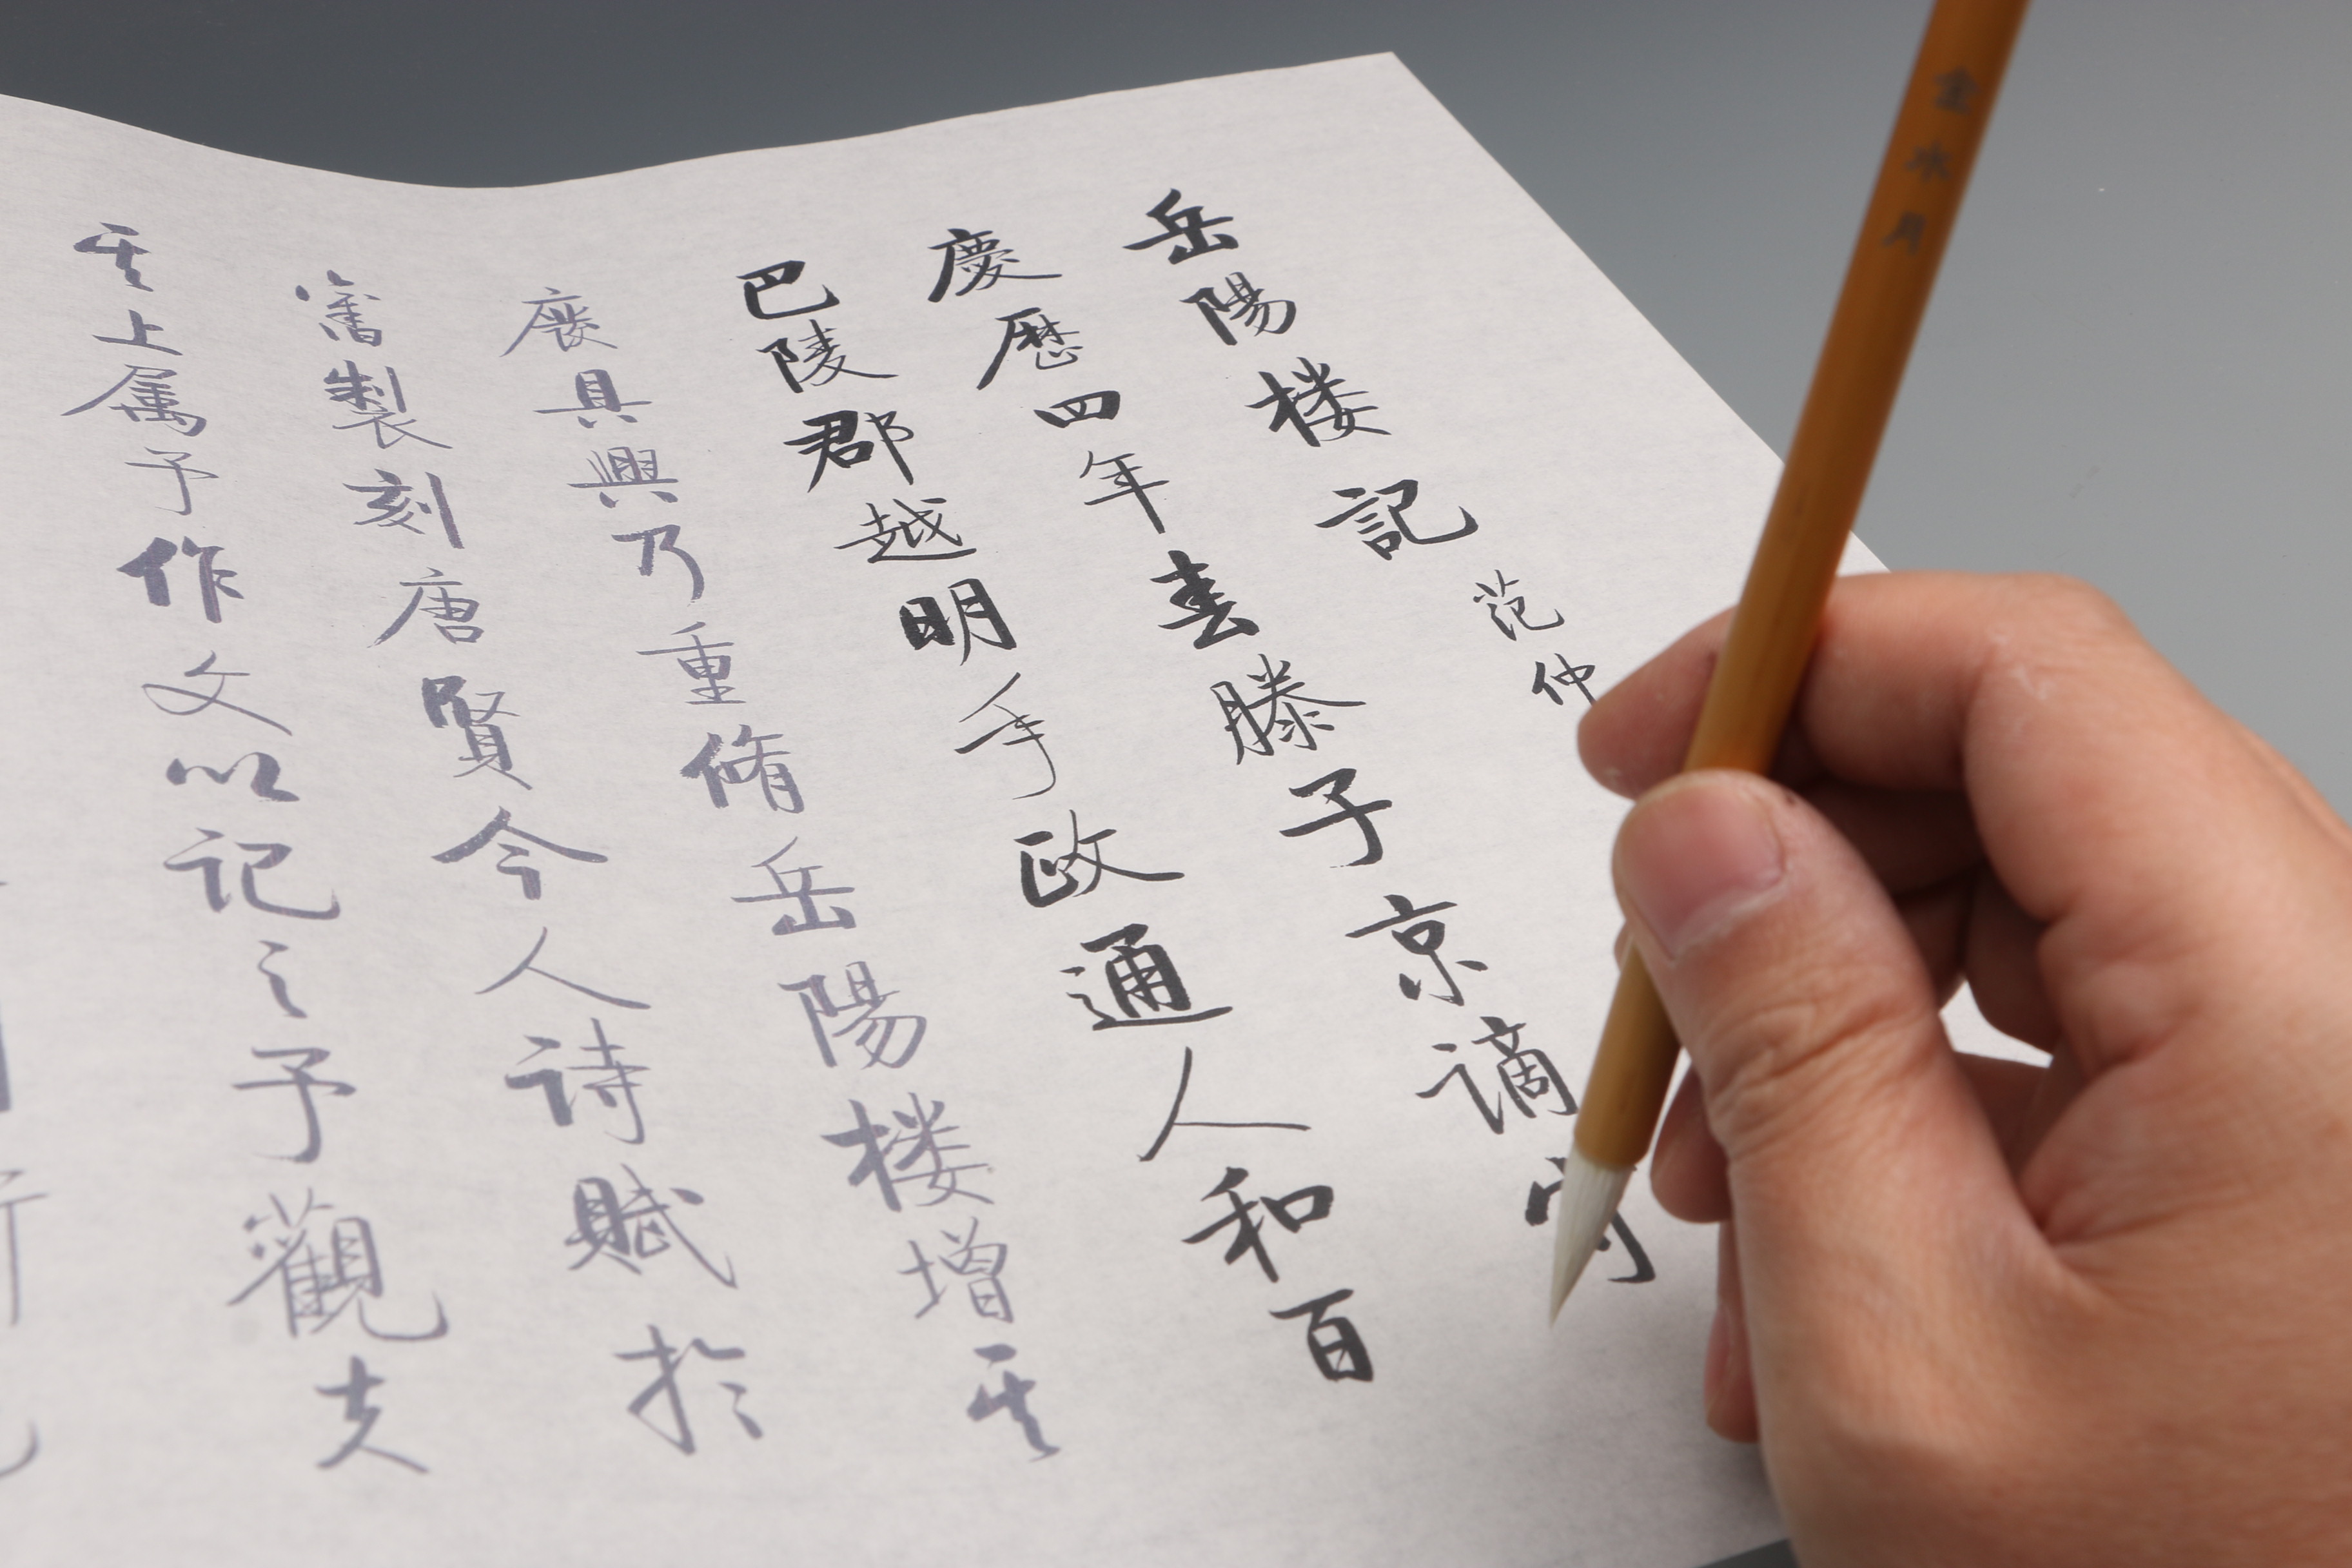 岳陽楼記 范仲
慶歷四年春滕子京谪守
巴陵郡越明年政通人和百
廢具興乃重脩岳陽楼增其
舊製刻唐賢今人诗賦於
其上属予作文以记之予觀夫